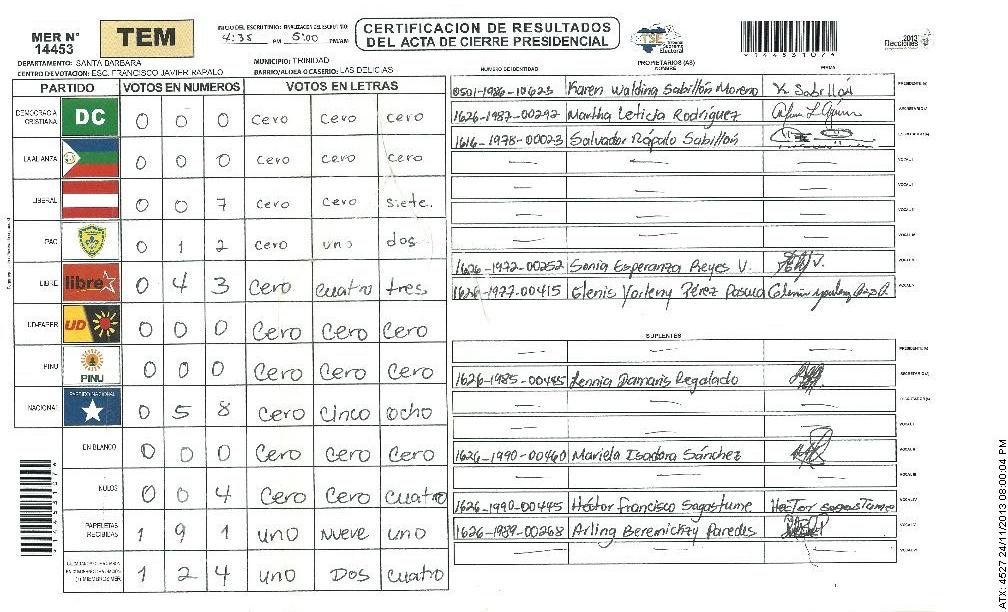 MER N° 14453
TEM
INICIO DEL ESCRUTINIO: 4:35 PM
FINALIZACION DEL ESCRUTINIO: 5:00 PM/AM
CERTIFICACION DE RESULTADOS DEL ACTA DE CIERRE PRESIDENCIAL
TSE Supremo Electoral
2013 Elecciones
DEPARTAMENTO: SANTA BARBARA
MUNICIPIO: TRINIDAD
CENTRO DE VOTACION: ESC. FRANCISCO JAVIER RAPALO
BARRIO/ALDEA O CASERIO: LAS DELICIAS
PARTIDO VOTOS EN NUMEROS VOTOS EN LETRAS
DEMOCRACIA CRISTIANA DC 0 0 0 cero cero cero
LA ALIANZA 0 0 0 cero cero cero
LIBERAL 0 0 7 cero cero siete.
PAC 0 1 2 cero uno dos
LIBRE libre 0 4 3 Cero cuatro tres
UD-FAPER UD 0 0 0 Cero Cero Cero
PINU PINU 0 0 0 Cero Cero Cero
NACIONAL PARTIDO NACIONAL 0 5 8 Cero Cinco ocho
EN BLANCO 0 0 0 Cero Cero Cero
NULOS 0 0 4 Cero Cero cuatro
PAPELETAS RECIBIDAS 1 9 1 uno Nueve uno
1 2 4 uno Dos cuatro
NUMERO DE IDENTIDAD PROPIETARIOS (AS) NOMBRE FIRMA
0501-1986-10623 Karen Walding Sabillón Moreno K Sabillón PRESIDENTE (A)
1626-1987-00292 Martha Leticia Rodríguez SECRETARIO (A)
1616-1978-00023 Salvador Rápalo Sabillón
VOCAL I
VOCAL II
VOCAL III
1626-1972-00252 Sonia Esperanza Reyes V.
1626-1977-00415 Glenis Yorleny Pérez Pascua
SUPLENTES
PRESIDENTE (A)
1626-1985-00485 Lennia Damaris Regalado SECRETARIO (A)
ESCRUTADOR (A)
VOCAL I
1626-1990-00460 Mariela Isadora Sánchez VOCAL II
VOCAL III
1626-1990-00445 Héctor Francisco Sagastume Hector sagastume VOCAL IV
1626-1989-00268 Arling Beremickzy Paredes VOCAL V
VOCAL VI
ATX: 4527 24/11/2013 08:00:04 PM